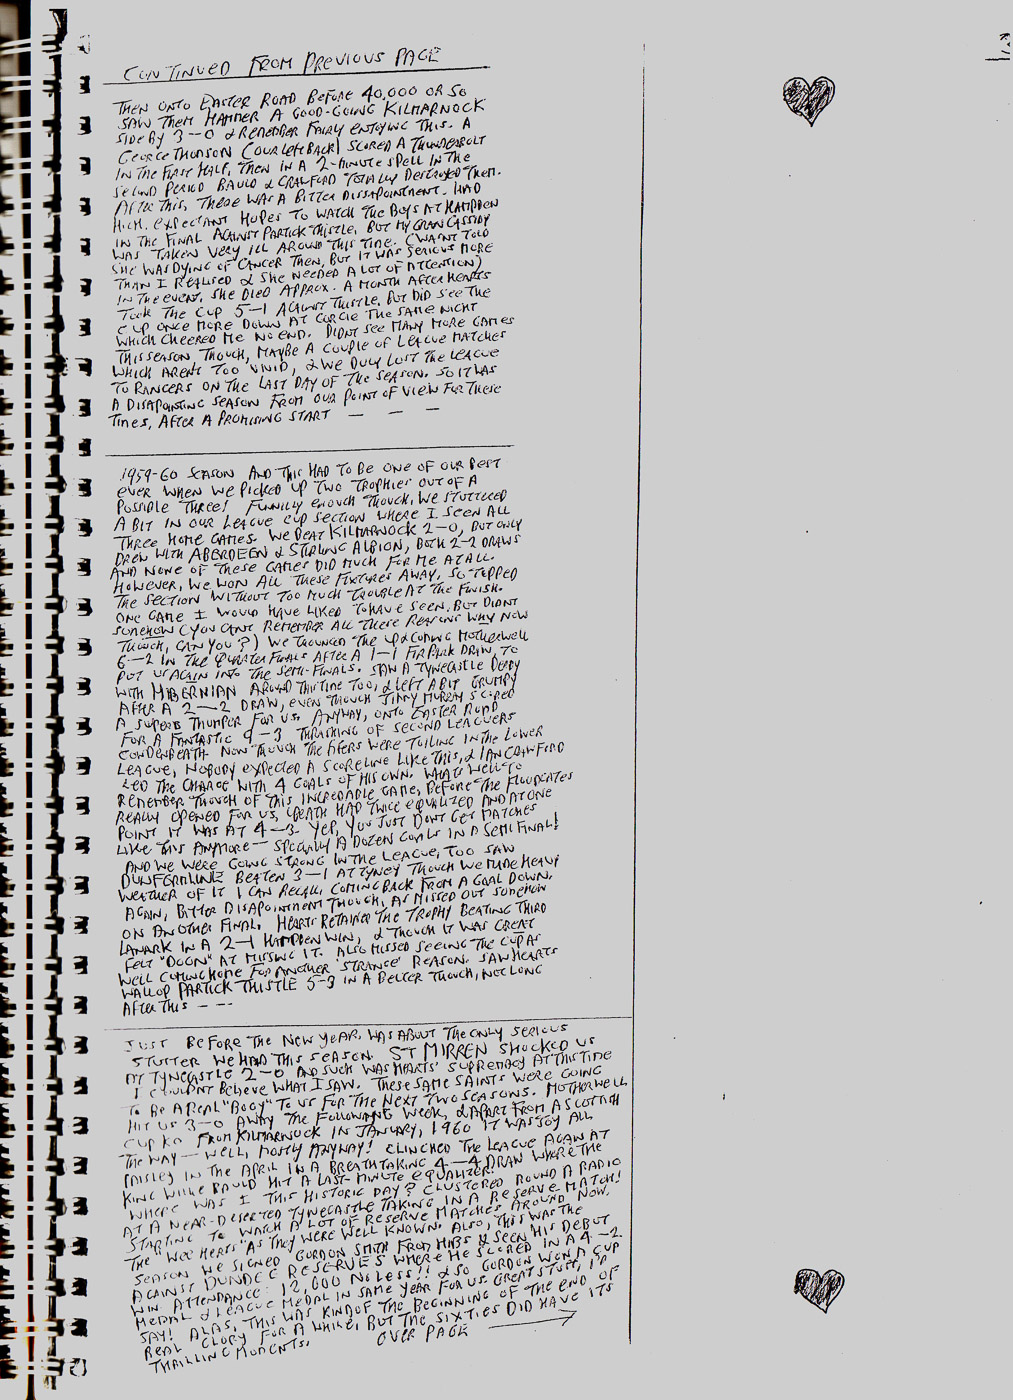 CONTINUED FROM PREVIOUS PAGE
THEN ONTO EASTER ROAD BEFORE 40,000 OR SO
SAW THEM HAMMER A GOOD-GOING KILMARNOCK
SIDE BY 3-0 & REMEMBER FAIRLY ENJOYING THIS. A
GEORGE THOMSON (OUR LEFT BACK) SCORED A THUNDERBOLT
IN THE FIRST HALF, THEN IN A 2-MINUTE SPELL IN THE
SECOND PERIOD BAULD & CRAWFORD TOTALLY DESTROYED THEM.
AFTER THIS, THERE WAS A BITTER DISSAPOINTMENT. HAD
HIGH, EXPECTANT HOPES TO WATCH THE BOYS AT HAMPDEN
IN THE FINAL AGAINST PARTICK THISTLE, BUT MY GRAN CASSIDY
WAS TAKEN VERY ILL AROUND THIS TIME. (WASN'T TOLD
SHE WAS DYING OF CANCER THEN, BUT IT WAS SERIOUS MORE
THAN I REALISED & SHE NEEDED A LOT OF ATTENTION)
IN THE EVENT, SHE DIED APPROX. A MONTH AFTER HEARTS
TOOK THE CUP 5-1 AGAINST THISTLE. BUT DID SEE THE
CUP ONCE MORE DOWN AT GORGIE THE SAME NIGHT
WHICH CHEERED ME NO END. DIDNT SEE MANY MORE GAMES
THIS SEASON THOUGH, MAYBE A COUPLE OF LEAGUE MATCHES
WHICH ARENT TOO VIVID, & WE DULY LOST THE LEAGUE
TO RANGERS ON THE LAST DAY OF THE SEASON. SO IT WAS
A DISAPOINTING SEASON FROM OUR POINT OF VIEW FOR THESE
TIMES, AFTER A PROMISING START — — —
1959-60 SEASON AND THIS HAD TO BE ONE OF OUR BEST
EVER WHEN WE PICKED UP TWO TROPHIES OUT OF A
POSSIBLE THREE! FUNNILY ENOUGH THOUGH, WE STUTTERED
A BIT IN OUR LEAGUE CUP SECTION WHERE I SEEN ALL
THREE HOME GAMES. WE BEAT KILMARNOCK 2-0, BUT ONLY
DREW WITH ABERDEEN & STIRLING ALBION, BOTH 2-2 DRAWS
AND NONE OF THESE GAMES DID MUCH FOR ME AT ALL.
HOWEVER, WE WON ALL THESE FIXTURES AWAY, SO TOPPED
THE SECTION WITHOUT TOO MUCH TROUBLE AT THE FINISH.
ONE GAME I WOULD HAVE LIKED TO HAVE SEEN, BUT DIDNT
SOMEHOW (YOU CANT REMEMBER ALL THESE REASONS WHY NOW
THOUGH, CAN YOU?) WE TROUNCED THE UP & COMING MOTHERWELL
6-2 IN THE QUARTER FINALS AFTER A 1-1 FIR PARK DRAW, TO
PUT US AGAIN INTO THE SEMI-FINALS. SAW A TYNECASTLE DERBY
WITH HIBERNIAN AROUND THIS TIME TOO, & LEFT A BIT GRUMPY
AFTER A 2-2 DRAW, EVEN THOUGH JIMMY MURRAY SCORED
A SUPERB THUMPER FOR US. ANYWAY, ONTO EASTER ROAD
FOR A FANTASTIC 9-3 THRASHING OF SECOND LEAGUERS
COWDENBEATH. NOW THOUGH THE FIFERS WERE TOILING IN THE LOWER
LEAGUE, NOBODY EXPECTED A SCORELINE LIKE THIS, & IAN CRAWFORD
LED THE CHARGE WITH 4 GOALS OF HIS OWN. WHATS WELL TO
REMEMBER THOUGH OF THIS INCREDABLE GAME, BEFORE THE FLOODGATES
REALLY OPENED FOR US, BEATH HAD TWICE EQUALIZED AND AT ONE
POINT IT WAS AT 4-3. YEP, YOU JUST DONT GET MATCHES
LIKE THIS ANYMORE - SPECIALLY A DOZEN GOALS IN A SEMI FINAL!
AND WE WERE GOING STRONG IN THE LEAGUE, TOO SAW
DUNFERMLINE BEATEN 3-1 AT TYNEY THOUGH WE MADE HEAVY
WEATHER OF IT I CAN RECALL, COMING BACK FROM A GOAL DOWN.
AGAIN, BITTER DISAPOINTMENT THOUGH, AS MISSED OUT SOMEHOW
ON ANOTHER FINAL. HEARTS RETAINED THE TROPHY BEATING THIRD
LANARK IN A 2-1 HAMPDEN WIN, & THOUGH IT WAS GREAT
FELT "DOON" AT MISSING IT. ALSO MISSED SEEING THE CUP AS
WELL COMING HOME FOR ANOTHER 'STRANGE' REASON. SAW HEARTS
WALLOP PARTICK THISTLE 5-3 IN A BELTER THOUGH, NOT LONG
AFTER THIS — — —
JUST BEFORE THE NEW YEAR, WAS ABOUT THE ONLY SERIOUS
STUTTER WE HAD THIS SEASON. ST MIRREN SHOCKED US
AT TYNECASTLE 2-0 AND SUCH WAS HEARTS' SUPREMACY AT THIS TIME
I COULDNT BELIEVE WHAT I SAW. THESE SAME SAINTS WERE GOING
TO BE A REAL "BOGY" TO US FOR THE NEXT TWO SEASONS. MOTHERWELL
HIT US 3-0 AWAY THE FOLLOWING WEEK, & APART FROM A SCOTTISH
CUP KO FROM KILMARNOCK IN JANUARY, 1960 IT WAS JOY ALL
THE WAY - WELL, MOSTLY ANYWAY! CLINCHED THE LEAGUE AGAIN AT
PAISLEY IN THE APRIL IN A BREATHTAKING 4-4 DRAW WHERE THE
KING WILLIE BAULD HIT A LAST-MINUTE EQUALIZER.
WHERE WAS I THIS HISTORIC DAY? CLUSTERED ROUND A RADIO
AT A NEAR-DESERTED TYNECASTLE TAKING IN A RESERVE MATCH!
STARTING TO WATCH A LOT OF RESERVE MATCHES AROUND NOW,
THE "WEE HERTS" AS THEY WERE WELL KNOWN. ALSO, THIS WAS THE
SEASON WE SIGNED GORDON SMITH FROM HIBS & SEEN HIS DEBUT
AGAINST DUNDEE RESERVES WHERE HE SCORED IN A 4-2
WIN. ATTENDANCE: 12,000 NO LESS!! & SO GORDON WON A CUP
MEDAL & LEAGUE MEDAL IN SAME YEAR FOR US. GREAT STUFF, I'D
SAY! ALAS, THIS WAS KIND OF THE BEGINNING OF THE END OF
REAL GLORY FOR A WHILE, BUT THE SIXTIES DID HAVE ITS
THRILLING MOMENTS.
OVER PAGE